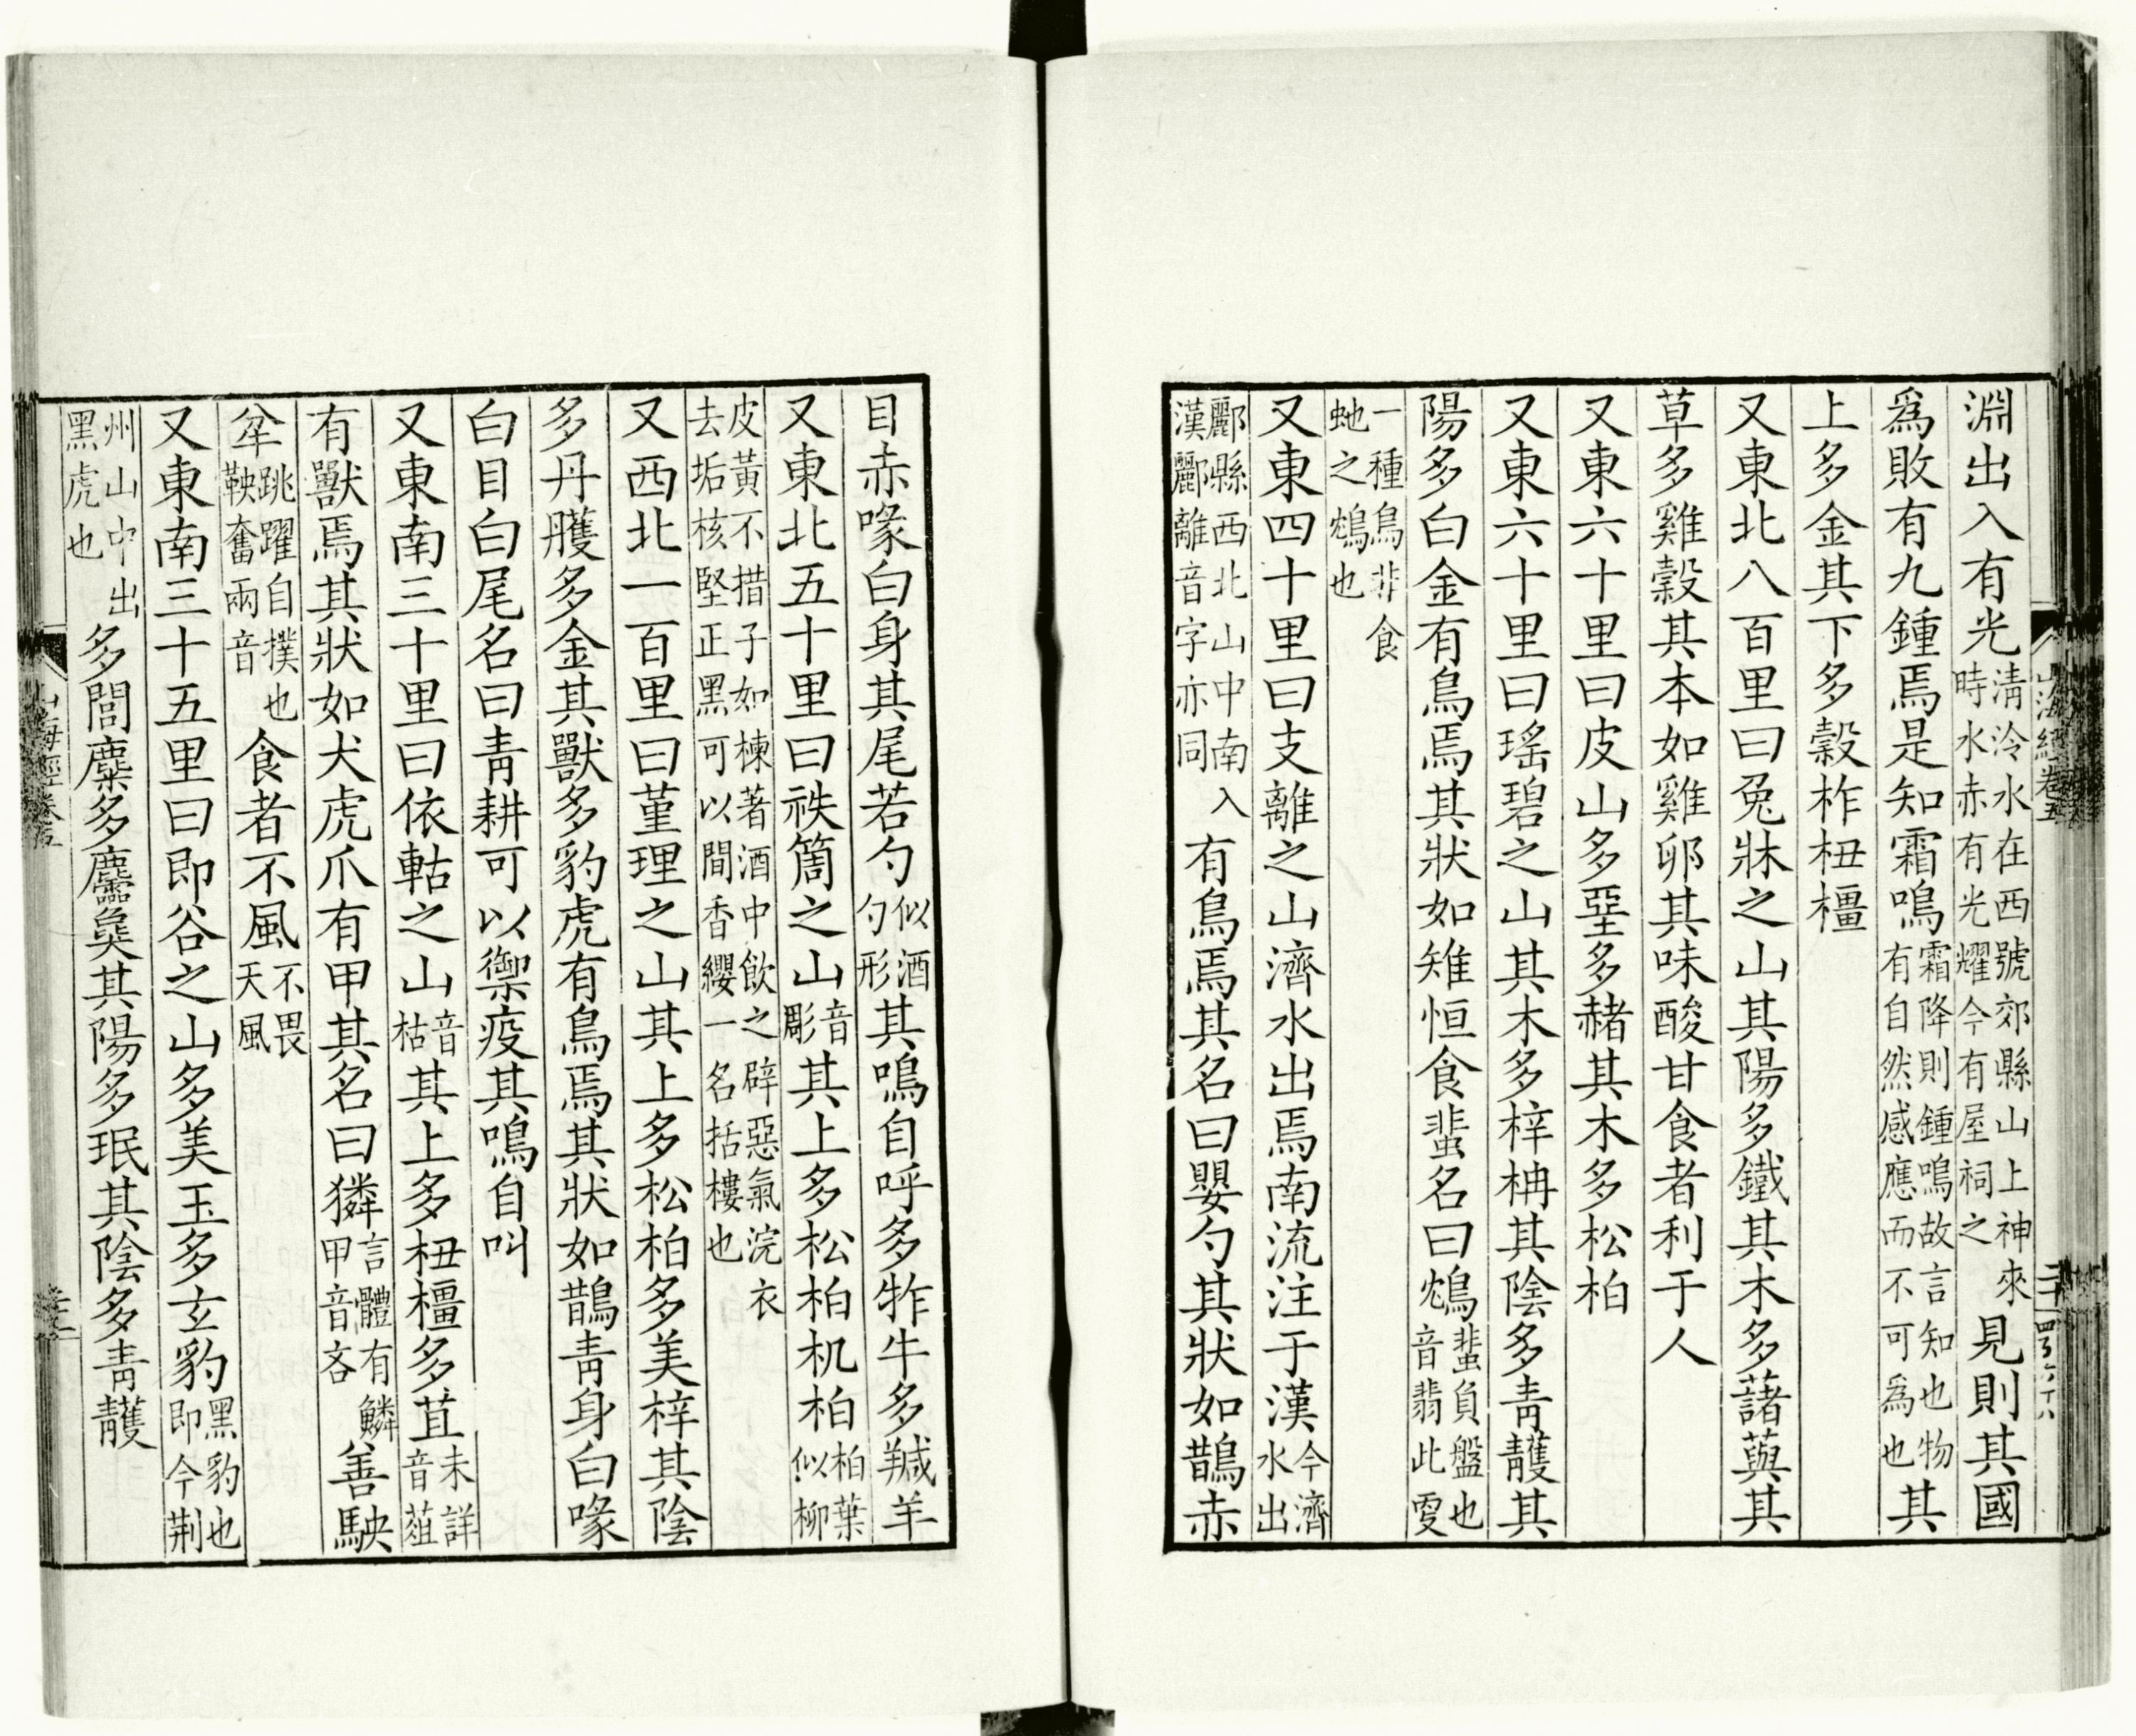 淵出入有光清泠水在西號郊縣山上神來時水赤有光耀今有屋祠之見則其國
爲敗有九鍾焉是知霜鳴霜降則鍾鳴故言知也物有自然感應而不可爲也其
上多金其下多穀柞杻橿
又東北八百里曰兔牀之山其陽多鐵其木多藷藇其
草多雞穀其本如雞卵其味酸甘食者利于人
又東六十里曰皮山多堊多赭其木多松柏
又東六十里曰瑤碧之山其木多梓枏其陰多青雘其
陽多白金有鳥焉其狀如雉恒食蜚名曰鴆蜚負盤也音翡此更
一種鳥非食虵之鴆也
又東四十里曰支離之山濟水出焉南流注于漢今濟水出
酈縣西北山中南入漢酈離音字亦同有鳥焉其名曰嬰勺其狀如鵲赤
目赤喙白身其尾若勺似酒勺形其鳴自呼多㸲牛多羬羊
又東北五十里曰祑簡之山音彫其上多松柏机柏柏葉似柳
皮黃不措子如楝著酒中飲之辟惡氣浣衣去垢核堅正黑可以間香纓一名括樓也
又西北一百里曰堇理之山其上多松柏多美梓其陰
多丹雘多金其獸多豹虎有鳥焉其狀如鵲青身白喙
白目白尾名曰青耕可以禦疫其鳴自叫
又東南三十里曰依軲之山音枯其上多杻橿多苴未詳音葅
有獸焉其狀如犬虎爪有甲其名曰獜言體有鱗甲音吝善駚
坌跳躍自撲也鞅奮兩音食者不風不畏天風
又東南三十五里曰即谷之山多美玉多玄豹黑豹也即今荆
州山中出黑虎也多閭麋多麢㚟其陽多珉其陰多青雘
山海經卷五